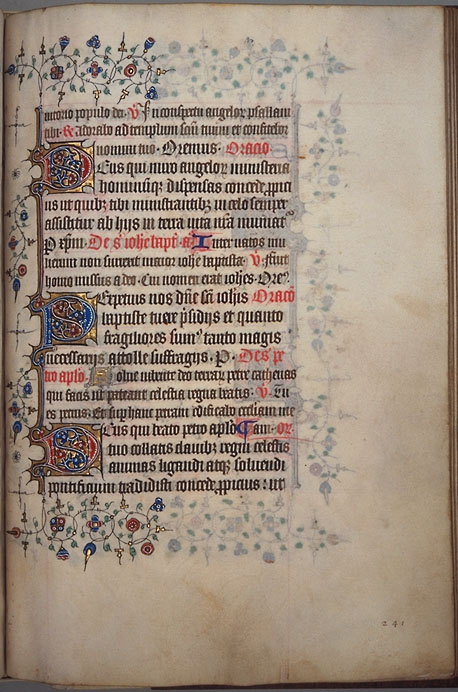 iutorio populo dei. V. In conspectu angelor psallam
tibi. R. Adorabo ad templum scm tuum et confitebor
nomini tuo. Oremus. Oracio.
Deus qui miro angelor ministeria
hominusq; dispensas concede ppici
us ut quibz tibi ministrantibz in celo semper
assistitur ab hijs in terra uita nra muniat
P xpm. De s iohe bapt. a Inter natos mu
lierum non surrexit maior iohe baptista. V. fuit
homo missus a deo. Cui nomen erat iohes. Ore
Perpetuis nos dne sci iohis Oraco
baptiste tuere psidijs et quanto
fragiliores sum tanto magis
necessarijs attolle suffragijs. P. De s pe
tro aplo. Solue iubente deo terrar petre cathenas
qui facis ut pateant celestia regna beatis. V. Tu
es petrus. Et sup hanc petram edificabo eccliam me
Deus qui beato petro aplo am. or
tuo collatis clauibz regni celestis
animas ligandi atq; soluendi
pontificium tradidisti concede ppicius ut
241